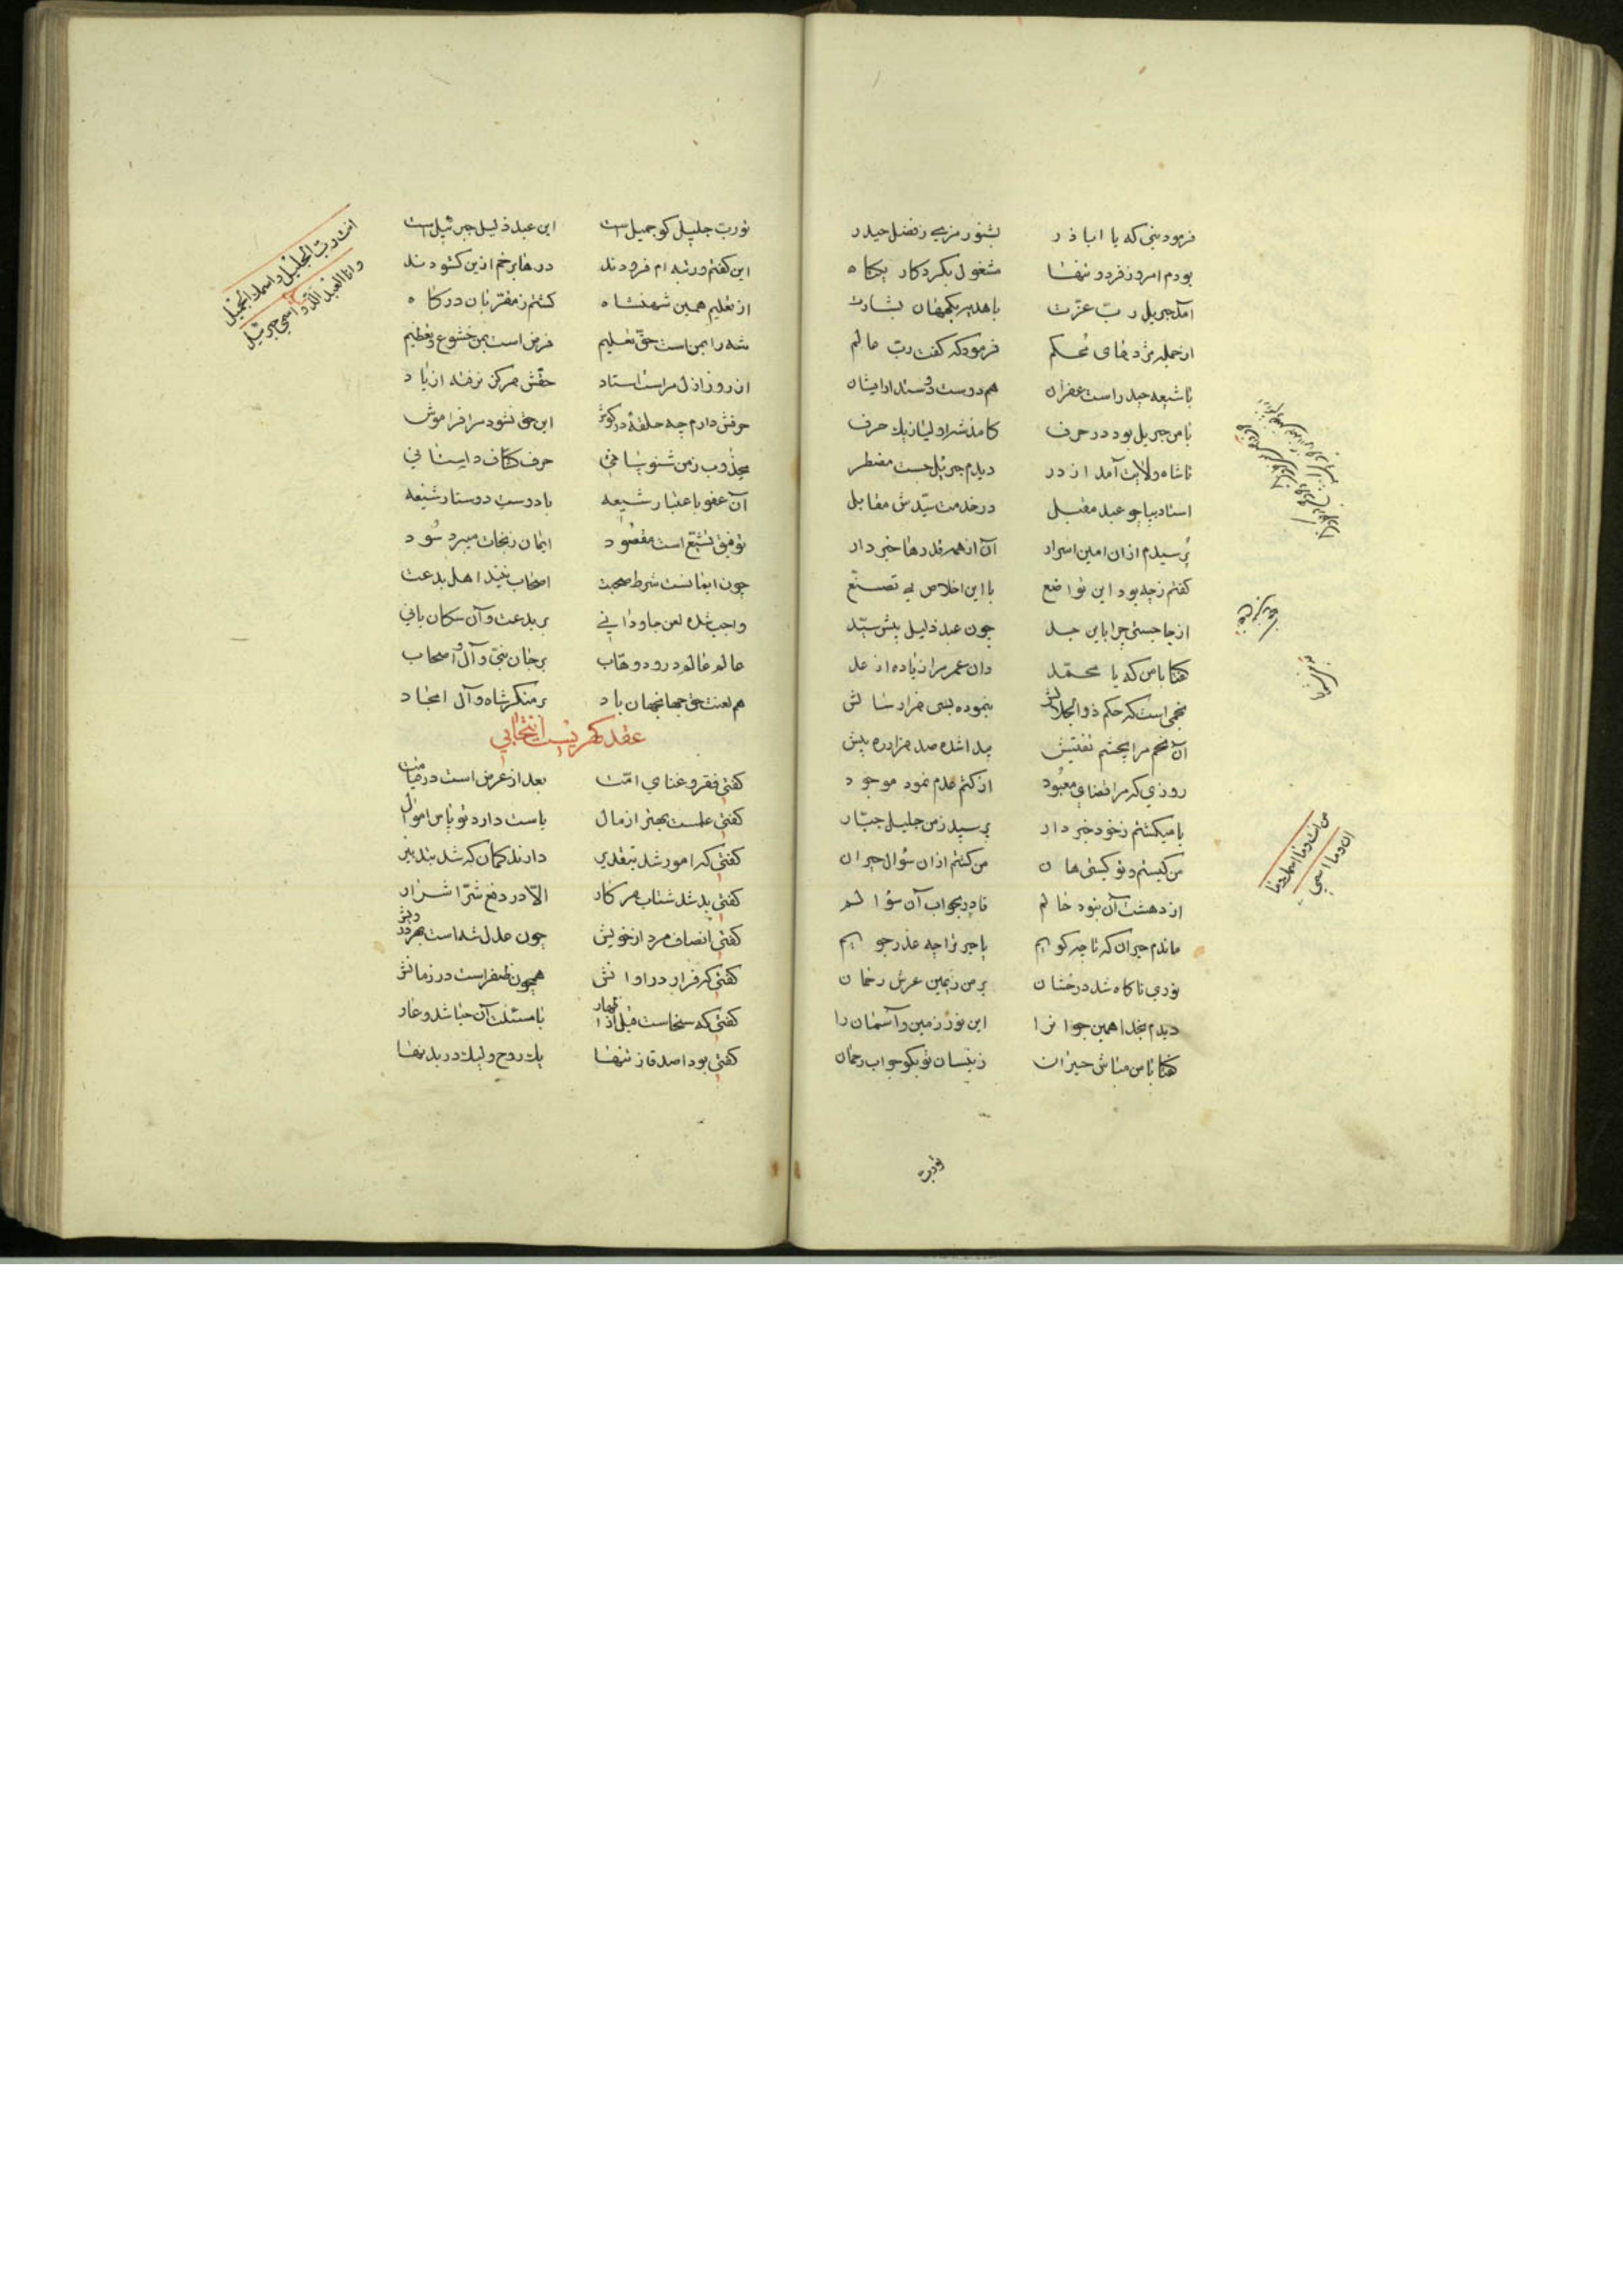 فرمود نبی که یا اباذر بشنو رمزی ز فضل حیدر
بودم امروز فرد و تنها مشغول بکردکار یکتا
آمد جبریل رب عزت با هدیه بشارت
از جمله مژدهای محکم فرمود که گفت رب عالم
با شیعه حیدر است غفران هم دوست دوستدار ایشان
با من جبریل بود در حرف
تا شاه ولایت آمد از در دیدم جبرئیل جست مضطر
استاد بپا چو عبد مقبل در خدمت سیدش مقابل
پرسیدم از آن امین اسرار آن از همه قدرها خبردار
گفتم ز چه بود این تواضع با این اخلاص بی تصنع
از جا جستی چرا باین جد چون عبد ذلیل پیش سید
گفتا با من که یا محمد دان عمر مرا زیاده از عد
نجمی است که حکم ذوالجلالش بنموده بسی هزار سالش
آن نجم مرا بچشم تفتیش پیدا شده صد هزار ره بیش
روزی که مرا قضای معبود از کتم عدم نمود موجود
تا میکشتم ز خود خبردار پرسید ز من جلیل جبار
من کیستم و تو کیستی هان من کشتم از آن سؤال حیران
از دهشت آن نبود حالم قادر بجواب آن سؤالم
ماندم حیران که تا چه گویم یا خیر ترا چه عذر جویم
نوری ناکاه شد درخشان بر من ز یمین عرش رحمان
دیدم بخدا همین جوانرا این نور زمین و آسمانرا
گفتا با من مباش حیران زینسان تو بگو جواب رحمان
من انت و ما اسمك و من انا و ما اسمی
تو رب
تو رب جلیل کو جمیل است این عبد ذلیل جبرئیل است
این گفتم و رتبه ام فزودند درهای برخم ازین کشودند
از تعلیم همین شهنشاه کشتم ز مقربان درگاه
شه را بمن است حق تعلیم فرض است بمن خشوع و تعظیم
از روز ازل مراست استاد حقش هرگز نرفته از یاد
حرفش دارم چو حلقه در گوش این حق نشود مرا فراموش
مجذوب ز من شنو
آن عفو با عتبار شیعه با دوست دوستار شیعه
توفیق تشیع است مقصود ایمان ز نجات میبرد سود
چون ایمانست شرط صحبت اصحاب نیند اهل بدعت
واجب شده لعن جاودانی بر بدعت و آن سکان بانی
عالم عالم درود وهاب بر جان نبی و آل و اصحاب
هم لعنت حق جهان جهان باد بر منکر شاه و آل امجاد
انت رب الجلیل و اسمك الجمیل
و انا العبد الذلیل و اسمی جبرئیل
عقد گهریست انتخابی
گفتی فقر و غنای امت بعد از عرض است در قیامت
گفتی علمست بهتر از مال پاست دارد تو پاس اموال
گفتی که امور شد بتقدیر دارند گمان که شد بتدبیر
گفتی بد شد شتاب هر کار الا در دفع شر اشرار
گفتی انصاف مرد از خویش چون عدل شه است
گفتی که فرار در اوانش همچون ظفر است در زمانش
گفتی که سخاست قبل اظهار با مسئلت آن حیا شد و عار
گفتی بود اصدقا ز تنها یك روح ولیك در بدنها